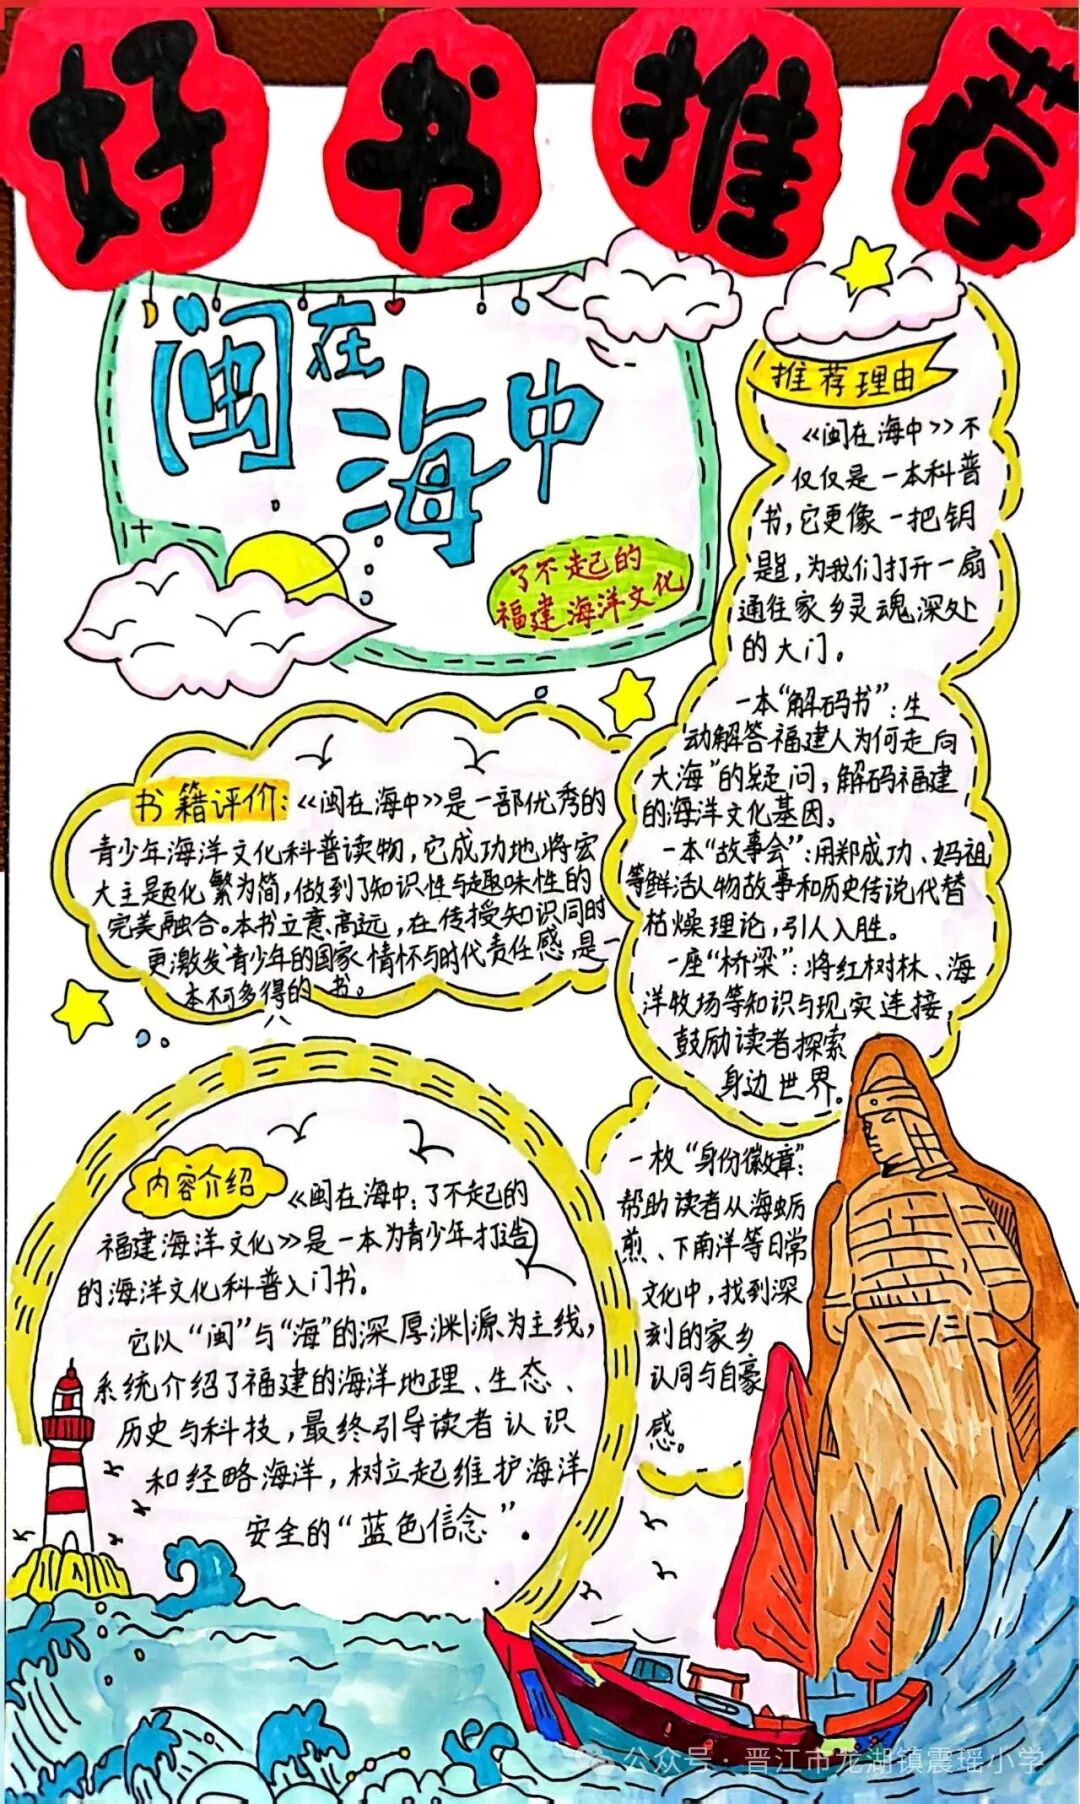 好书推荐
闽在
海中
了不起的
福建海洋文化
推荐理由
《闽在海中》不
仅仅是一本科普
书，它更像一把钥
匙，为我们打开一扇
通往家乡灵魂深处
的大门。
一本“解码书”：生
动解答福建人为何走向
大海”的疑问，解码福建
的海洋文化基因。
一本“故事会”：用郑成功、妈祖
等鲜活人物故事和历史传说代替
枯燥理论，引人入胜。
一座“桥梁”：将红树林、海
洋牧场等知识与现实连接，
鼓励读者探索
身边世界。
一枚“身份徽章”：
帮助读者从海蛎
煎、下南洋等日常
文化中，找到深
刻的家乡
认同与自豪
感。
书籍评价：《闽在海中》是一部优秀的
青少年海洋文化科普读物，它成功地将宏
大主题化繁为简，做到了知识性与趣味性的
完美融合。本书立意高远，在传授知识同时
更激发青少年的国家情怀与时代责任感，是一
本不可多得的书。
内容介绍
《闽在海中：了不起的
福建海洋文化》是一本为青少年打造
的海洋文化科普入门书。
它以“闽”与“海”的深厚渊源为主线，
系统介绍了福建的海洋地理、生态、
历史与科技，最终引导读者认识
和经略海洋，树立起维护海洋
安全的“蓝色信念”．
公众号·晋江市龙湖镇震瑶小学